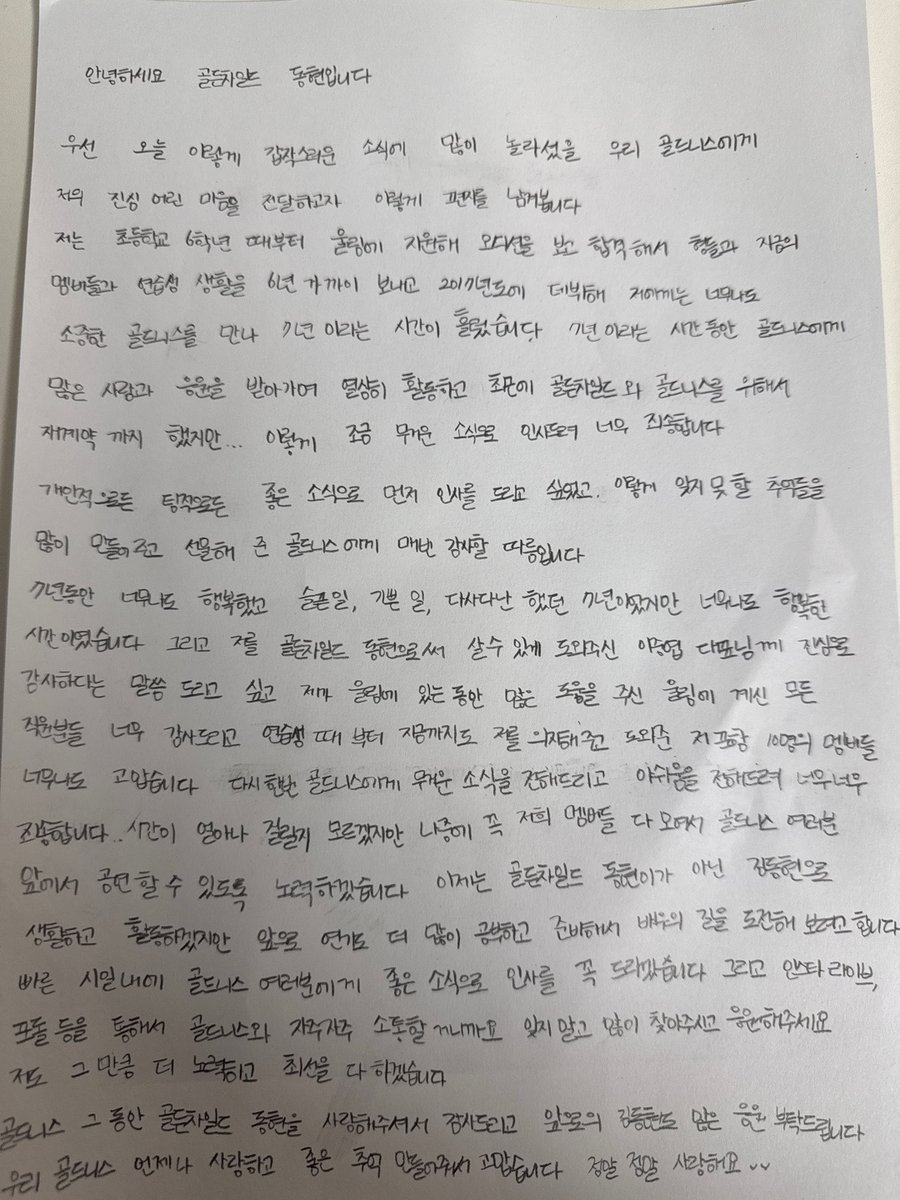 안녕하세요 골든차일드 동현입니다
우선 오늘 이렇게 갑작스러운 소식에 많이 놀라셨을 우리 골드니스에게
저의 진심 어린 마음을 전달하고자 이렇게 편지를 남겨봅니다
저는 초등학교 6학년 때부터 울림에 지원해 오디션을 보고 합격해서 형들과 지금의
멤버들과 연습생 생활을 6년 가까이 보내고 2017년도에 데뷔해 저에게는 너무나도
소중한 골드니스를 만나 7년 이라는 시간이 흘렀습니다, 7년 이라는 시간 동안 골드니스에게
많은 사랑과 응원을 받아가며 열심히 활동하고 최근에 골든차일드와 골드니스를 위해서
재계약 까지 했지만... 이렇게 조금 무거운 소식으로 인사드려 너무 죄송합니다
개인적으로든 팀적으로든 좋은 소식으로 먼저 인사를 드리고 싶었고. 이렇게 잊지 못 할 추억들을
많이 만들어 주고 선물해 준 골드니스에게 매번 감사할 따름입니다
7년동안 너무나도 행복했고 슬픈일, 기쁜 일, 다사다난 했던 7년이었지만 너무나도 행복한
시간이였습니다 그리고 저를 골든차일드 동현으로써 살 수 있게 도와주신 이중엽 대표님께 진심으로
감사하다는 말씀 드리고 싶고 제가 울림에 있는 동안 많은 도움을 주신 울림에 계신 모든
직원분들 너무 감사드리고 연습생 때 부터 지금까지도 저를 의지해주고 도와준 저 포함 10명의 멤버들
너무나도 고맙습니다 다시 한번 골드니스에게 무거운 소식을 전해드리고 아쉬움을 전해드려 너무너무
죄송합니다.. 시간이 얼마나 걸릴지 모르겠지만 나중에 꼭 저희 멤버들 다 모여서 골드니스 여러분
앞에서 공연 할 수 있도록 노력하겠습니다 이제는 골든차일드 동현이가 아닌 김동현으로
생활하고 활동하겠지만 앞으로 연기도 더 많이 공부하고 준비해서 배우의 길을 도전해 보려고 합니다
빠른 시일내에 골드니스 여러분에게 좋은 소식으로 인사를 꼭 드리겠습니다 그리고 인스타 라이브,
포돌 등을 통해서 골드니스와 자주자주 소통할 거니까요 잊지 말고 많이 찾아주시고 응원해주세요
저도 그 만큼 더 노력하고 최선을 다 하겠습니다
골드니스 그 동안 골든차일드 동현을 사랑해주셔서 감사드리고 앞으로의 김동현도 많은 응원 부탁드립니다
우리 골드니스 언제나 사랑하고 좋은 추억 만들어줘서 고맙습니다 정말 정말 사랑해요 ᵕᵕ